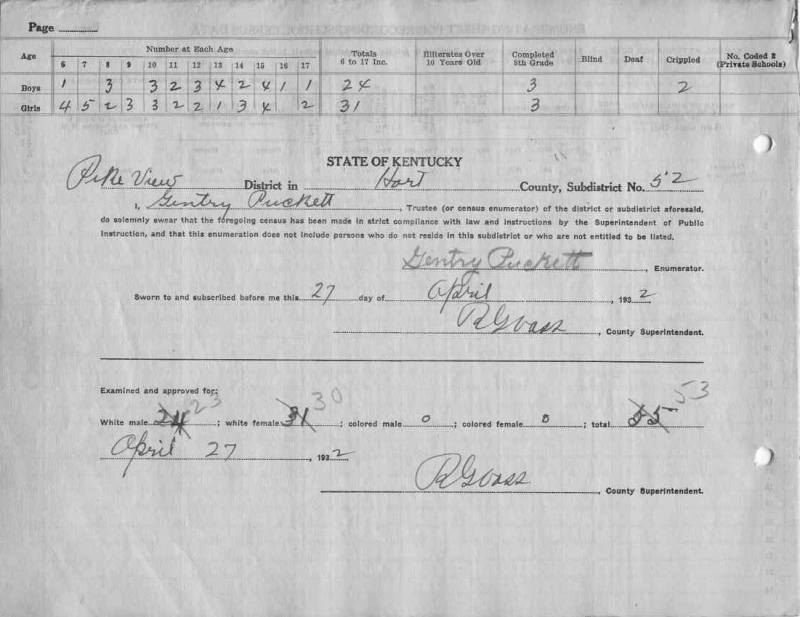 Page
Age Number at Each Age Totals 6 to 17 Inc. Illiterates Over 10 Years Old Completed 8th Grade Blind Deaf Crippled No. Coded 2 (Private Schools)
6 7 8 9 10 11 12 13 14 15 16 17
Boys 1 3 3 2 3 4 2 4 1 1 24 3 2
Girls 4 5 2 3 3 2 2 1 3 4 2 31 3
STATE OF KENTUCKY
Pike View District in Hart County, Subdistrict No. 52
I, Gentry Puckett, Trustee (or census enumerator) of the district or subdistrict aforesaid,
do solemnly swear that the foregoing census has been made in strict compliance with law and instructions by the Superintendent of Public
Instruction, and that this enumeration does not include persons who do not reside in this subdistrict or who are not entitled to be listed.
Gentry Puckett, Enumerator.
Sworn to and subscribed before me this 27 day of April, 1932
RGVass, County Superintendent.
Examined and approved for:
White male 24 23; white female 31 30; colored male 0; colored female 0; total 55 53
April 27, 1932
RGVass, County Superintendent.